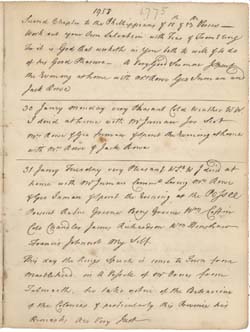 1775
Second Chapter to the Philippians 12th & 13th Verses
Work out your own Salvation with Fear & Trembling
for it is God that worketh in you both to will & to do
of his Good Pleasure. A very Good Sermon Spent
the evening at home with
Jack Rowe
30 Janry Monday very Pleasant Cold Weather W W
I dined at home with Mr Inman
Mr Rowe & Geo Inman & Spent the evening at home
with Mrs Rowe & Jack Rowe
31 Janry Tuesday very Pleasant W W I dind at
home with Mr Inman Mrs Rowe
& Geo Inman & spent the evening at the Possee
Present
Colo Chandler James Richardson Wm
Francis Johonnot My Self.
This day the Kings Speech is come to Town from
Marblehead, in a Vessell of from
Falmouth, he takes notice of the Behaviour
of the Colonies & particularly this Province his
Remarks are very Just